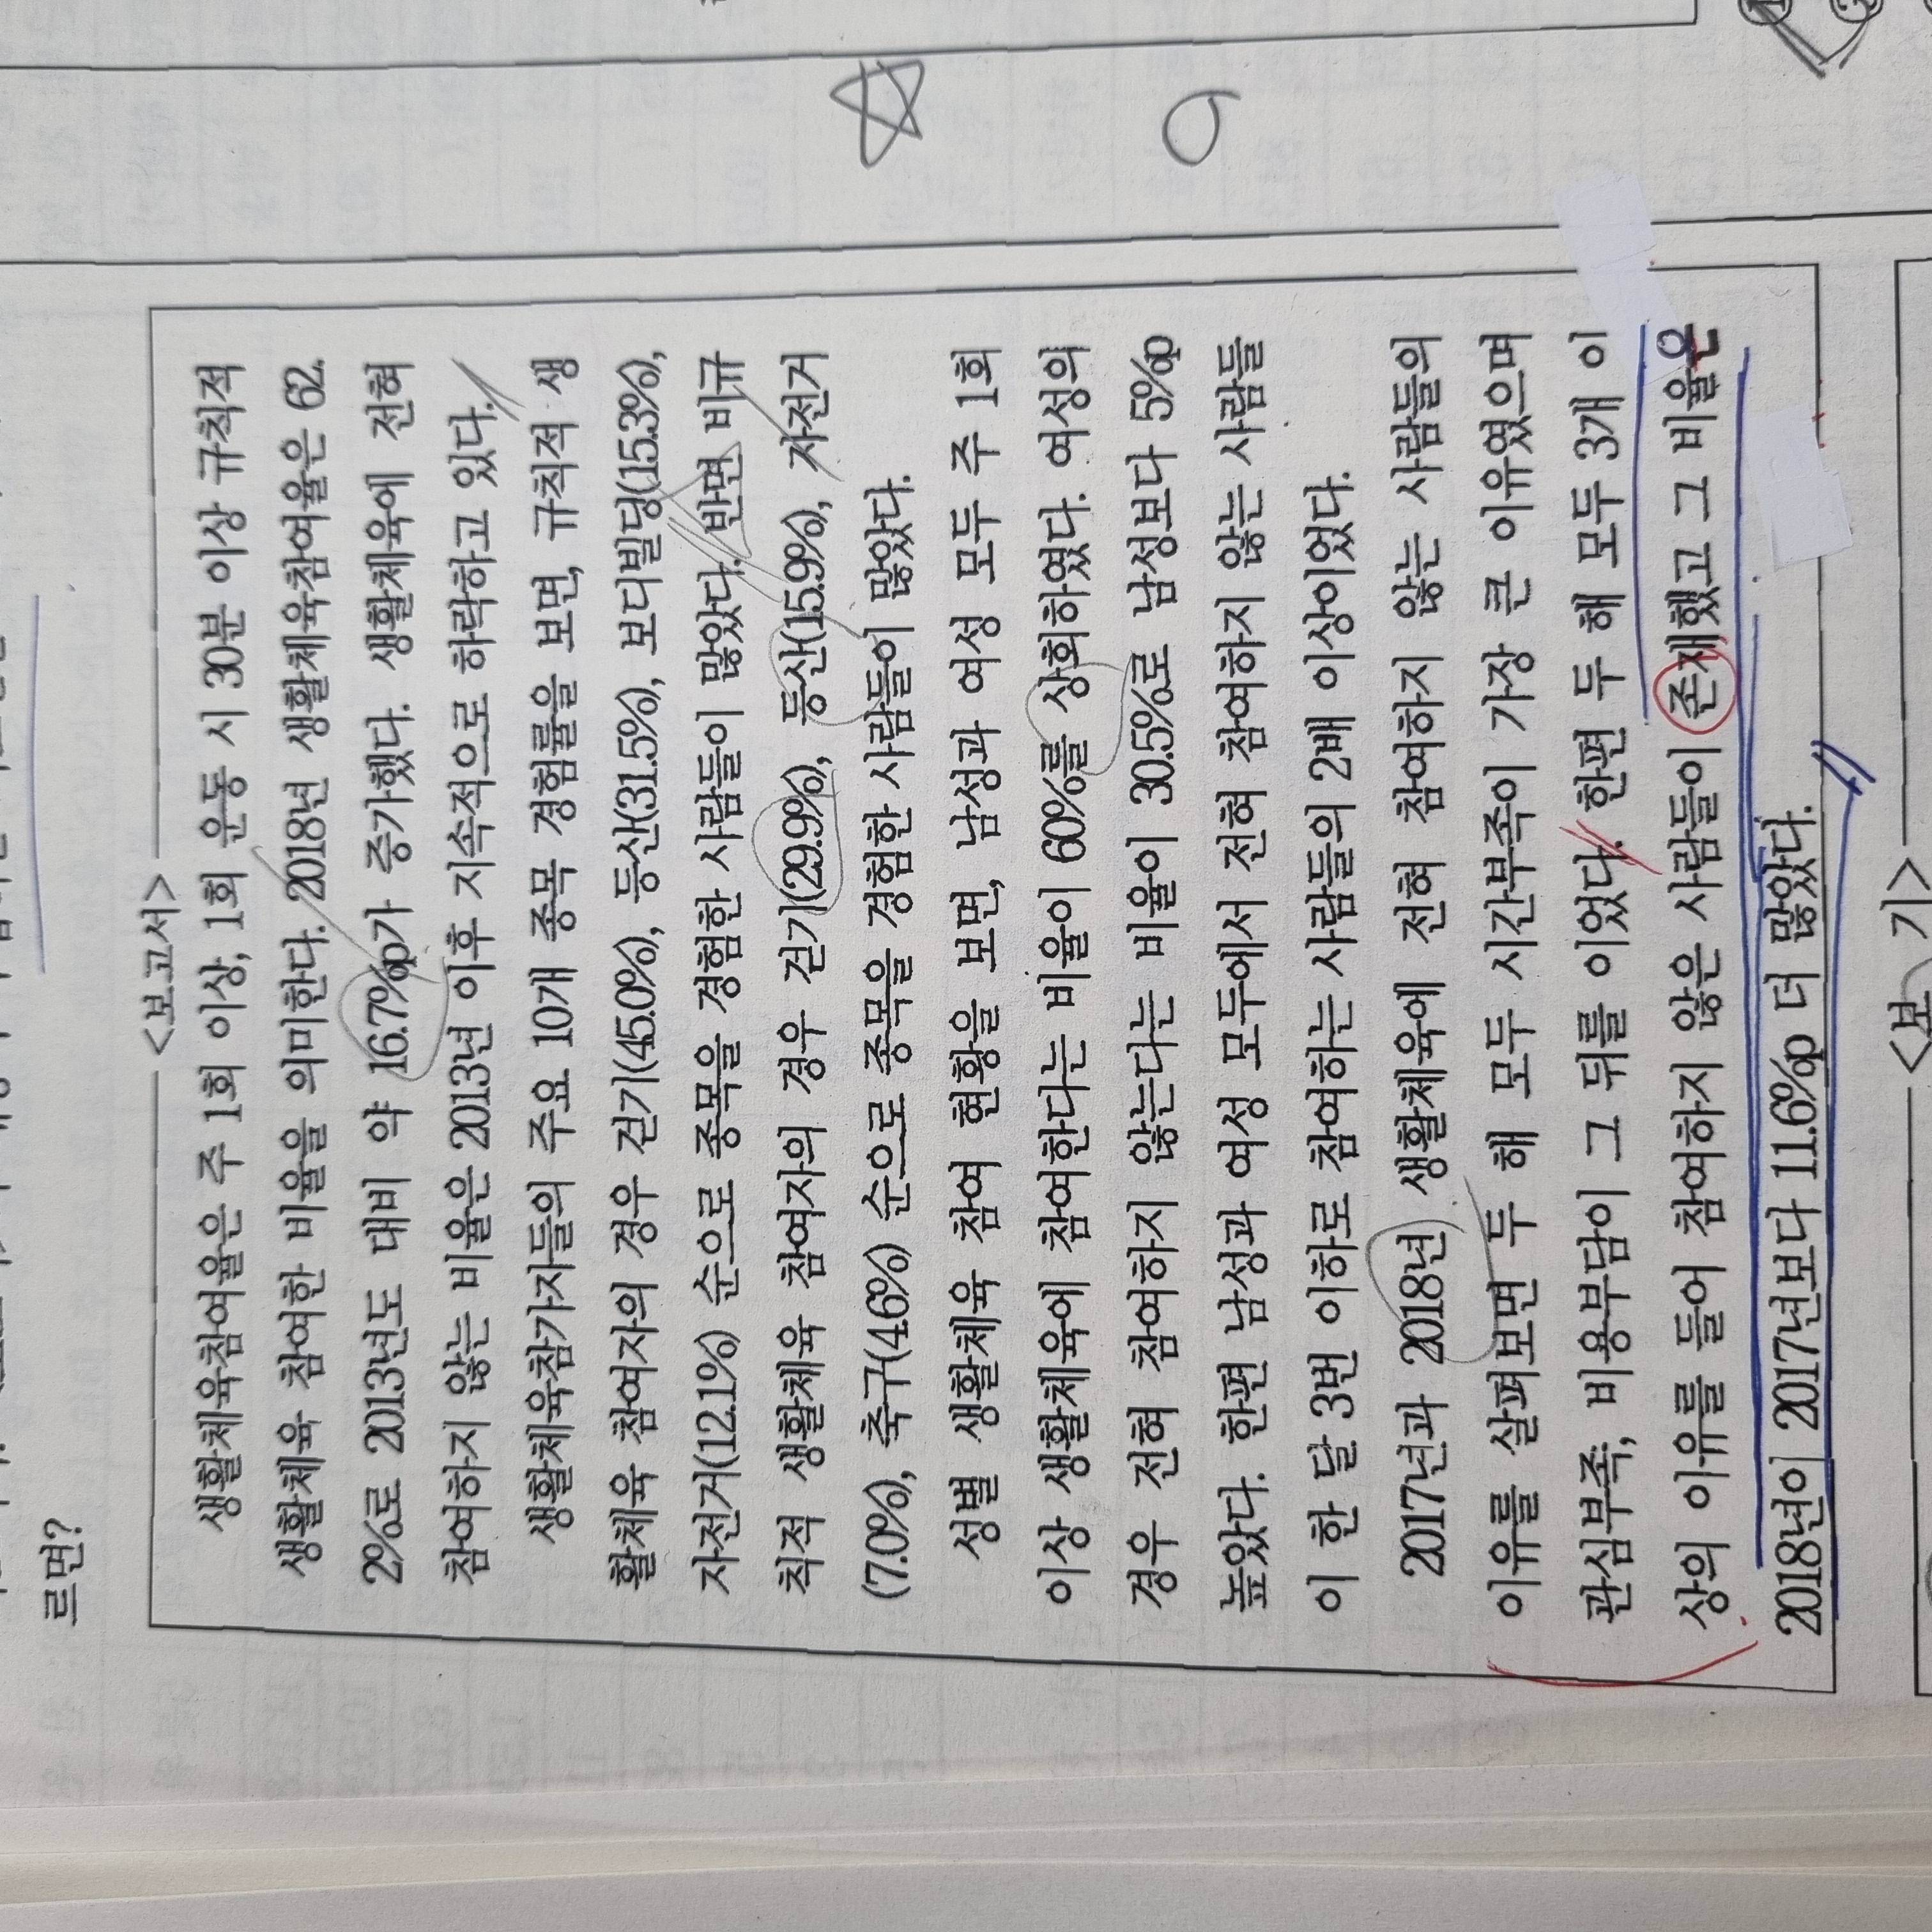 르면?
<보고서>
생활체육참여율은 주 1회 이상, 1회 운동 시 30분 이상 규칙적
생활체육 참여한 비율을 의미한다. 2018년 생활체육참여율은 62.
2%로 2013년도 대비 약 16.7%p가 증가했다. 생활체육에 전혀
참여하지 않는 비율은 2013년 이후 지속적으로 하락하고 있다.
생활체육참가자들의 주요 10개 종목 경험률을 보면, 규칙적 생
활체육 참여자의 경우 걷기(45.0%), 등산(31.5%), 보디빌딩(15.3%),
자전거(12.1%) 순으로 종목을 경험한 사람들이 많았다. 반면 비규
칙적 생활체육 참여자의 경우 걷기(29.9%), 등산(15.9%), 자전거
(7.0%), 축구(4.6%) 순으로 종목을 경험한 사람들이 많았다.
성별 생활체육 참여 현황을 보면, 남성과 여성 모두 주 1회
이상 생활체육에 참여한다는 비율이 60%를 상회하였다. 여성의
경우 전혀 참여하지 않는다는 비율이 30.5%로 남성보다 5%p
높았다. 한편 남성과 여성 모두에서 전혀 참여하지 않는 사람들
이 한 달 3번 이하로 참여하는 사람들의 2배 이상이었다.
2017년과 2018년 생활체육에 전혀 참여하지 않는 사람들의
이유를 살펴보면 두 해 모두 시간부족이 가장 큰 이유였으며
관심부족, 비용부담이 그 뒤를 이었다. 한편 두 해 모두 3개 이
상의 이유를 들어 참여하지 않은 사람들이 존재했고 그 비율은
2018년이 2017년보다 11.6%p 더 많았다.
<보 기>